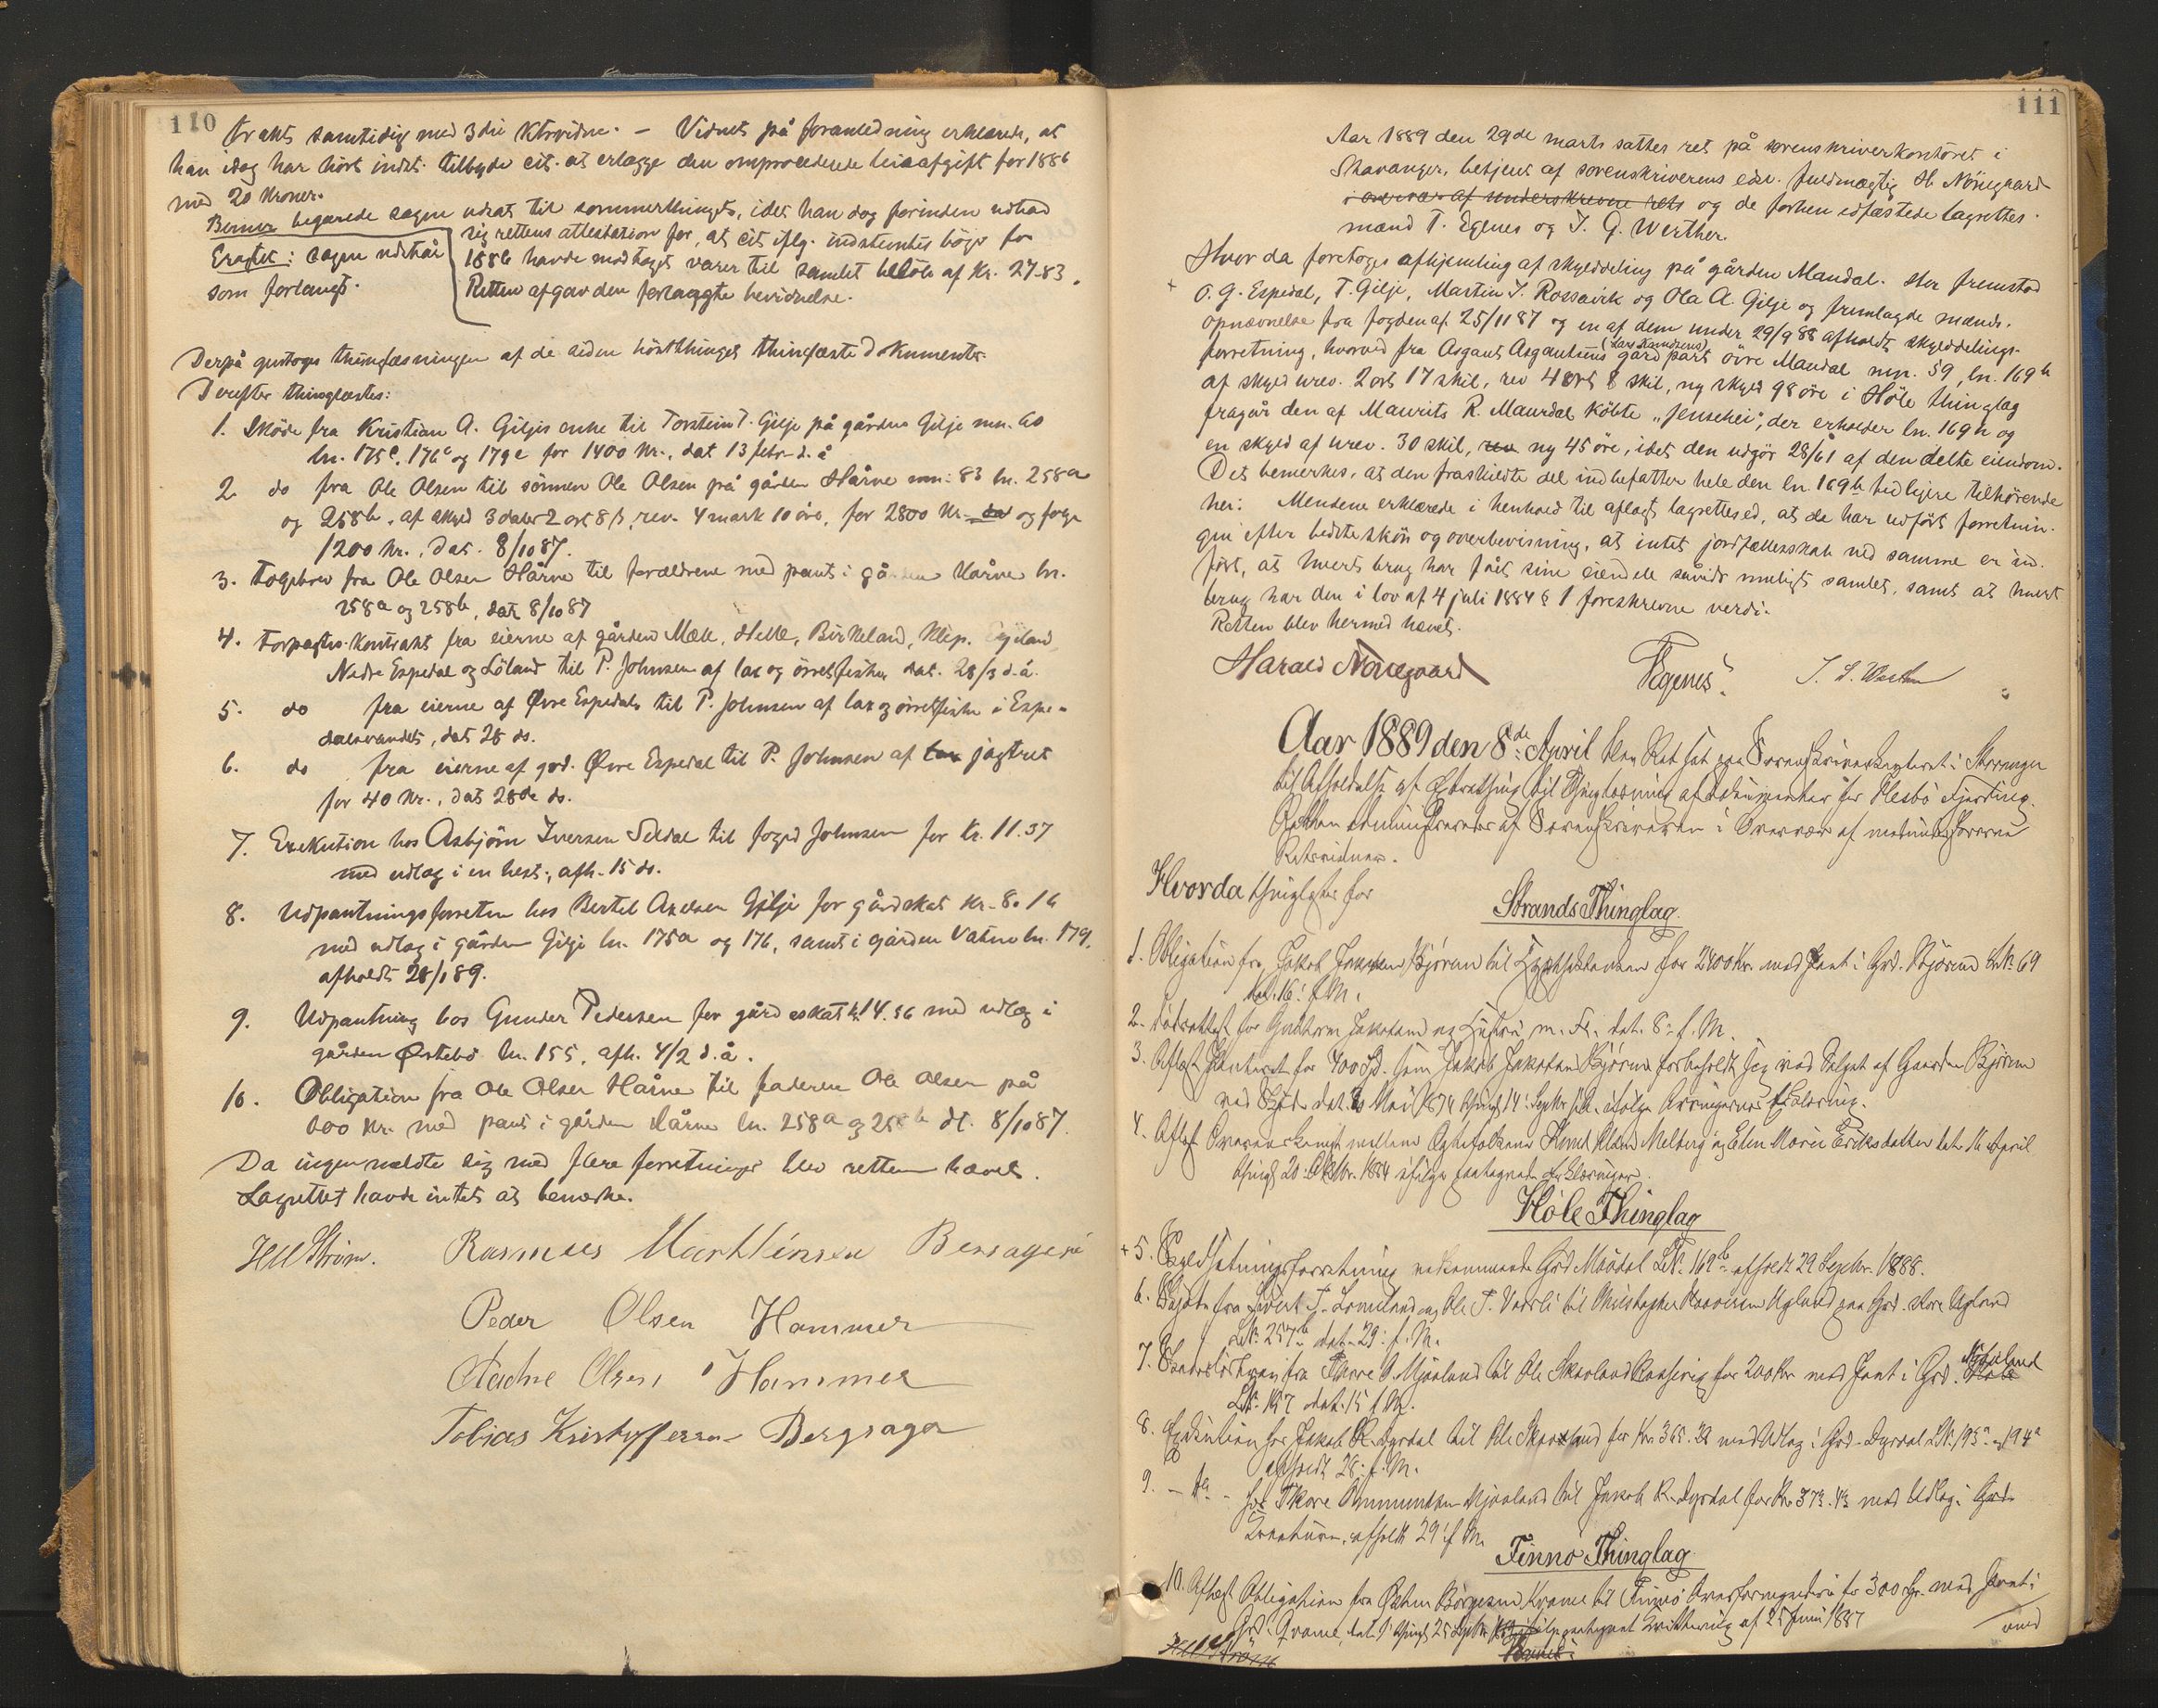 110
trakt samtidig med 3die ktrvidne. — Vidnet på foranledning erklærede, at
han idag har hört indst. tilbyde cit. at erlægge den omprocederede leieafgift for 1886
med 20 kroner.
Berner begjærede sagen udsat til sommerthinget, idet han dog forinden udbad
sig rettens attestation for, at cit. iflg. indstevntes böger for
1886 havde modtaget varer til samlet belöb af Kr. 27.83.
Retten afgav den forlangte bevidnelse.
Eragtet: Sagen udstår
som forlangt.
Derpå gjentoges thinglæsningen af de siden höstthinget thinglæste Dokumenter.
Derefter thinglæstes:
1. Sköde fra Kristian A. Giljes enke til Torstein T. Gilje på gården Gilje mn. 60
ln. 175c, 176c og 179c for 1400 Kr., dat 13 febr d. å
2. do fra Ole Olsen til sönnen Ole Olsen på gården Hårne mn. 83 ln. 258a
og 258b, af skyld 3 daler 2 ort 8 s, rev. 4 mark 10 öre, for 2800 Kr. og folge
1200 kr., dat. 8/10 87.
3. Folgebrev fra Ole Olsen Hårne til forældrene med pant i gården Hårne ln.
258a og 258b, dat 8/10 87
4. Forpagtn. kontrakt fra eierne af gården Mæle, Helle, Birkeland, Klep, Eigeland
Nedre Espedal og Löland til P. Johnsen af lax og örretfisket, dat. 28/3 d. å.
5. do fra eierne af Övre Espedals til P. Johnsen af lax og örretfisket i Espe-
dalsvandet, dat 28 ds.
6. do fra eierne af grd. Övre Espedal til P. Johnsen af jagtret
for 40 kr., dat 28de ds.
7. Exekution hos Asbjörn Iversen Seldal til foged Johnsen for Kr. 11.37
med udlæg i en hest, afh. 15 ds.
8. Udpantningsforretn hos Bertel Axelsen Gilje for gårdskat Kr. 8.16
med udlæg i gården Gilje ln. 175a og 176, samt i gården Vatne ln. 179,
afholdt 28/1 89.
9. Udpantning hos Gunder Pedersen for gårdskat kr 14.56 med udlæg i
gården Östebö ln. 155, afh. 4/2 d. å.
10. Obligation fra Ole Olsen Hårne til faderen Ole Olsen på
600 Kr. med pant i gården Hårne ln. 258a og 258b dt. 8/10 87.
Da ingen meldte sig med flere forretninger blev retten hævet.
Lagrettet havde intet at bemærke.
HM Ström. Rasmus Marthinsen Bersagel
Peder Olsen Hammer
Aadne Olsen Hammer
Tobias Kristoffersen Bergsagel
111
Aar 1889 den 29de marts sattes ret på sorenskriverkontoret i
Stavanger, betjent af sorenskriverens edsv. fuldmægtig H. Nörregaard
i overvær af underskrevne rets og de forhen edfæstede lagrettes-
mænd T. Egenes og J. G. Werther.
Hvor da foretoges afhjemling af skylddeling på gården Mandal. Her fremstod
O. G. Espedal, T. Gilje, Martin T. Rossavik og Ola A. Gilje og fremlagde mænds.
opnævnelse fra fogden af 25/11 87 og en af dem under 29/9 88 afholdt skylddelings-
forretning, hvorved fra Asgaut Asgautsens (Lars Knudsens) gård part övre Mandal mn. 59, ln. 169b
af skyld urev. 2 ort 17 skil, rev 4 ort 8 skil, ny skyld 98 öre i Höle thinglag
fragår den af Maurits R. Maurdal köbte „Jenshei“, der erholder ln. 169h og
en skyld af urev. 30 skil, ny 45 öre, idet den udgör 28/61 af den delte eiendom.
Det bemerkes, at den fraskildte del indbefatter hele den ln. 169h tidligere tilhörende
hei. Mændene erklærede i henhold til aflagt lagrettesed, at de har udfört forretnin-
gen efter bedste skjön og overbevisning, at intet jordfællesskab ved samme er ind-
fört, at hvert brug har fåt sine eiendele såvidt muligt samlet, samt at hvert
brug har den i lov af 4 juli 1884 § 1 foreskrevne verdi.
Retten blev hermed hævet.
Harald Nörregaard TEgenes. J. G. Werther
Aar 1889 den 8de April blev Ret sat paa Sorenskriverkontoret i Stavanger
til Afholdelse af Extrathing til Thinglæsning af Dokumenter for Hesbö Fjerding.
Retten administreredes af Sorenskriveren i Overvær af nedenunderskrevne
Retsvidner.
Hvorda thinglæstes for
Strands Thinglag
1. Obligation fra Jakob Jakobsen Björem til Hypothekbanken for 2400 Kr. med Pant i Grd. Björem LN. 69
dat. 16. f. M.
2. Dödsattest for Guttorm Jakobsen og Hustru m. Fl., dat. 8. f. M.
3. Aflæst Panteret for 400 Spd. som Jakob Jakobsen Björem forbeholdt sig ved Salget af Gaarden Björem
ved Skjöde dat. Mai 1874 thingl. 14. Septbr s. A. ifölge Arvingernes Erklæring.
4. Aflæst Overenskomst mellem Ægtefolkene Knud Melberg og Elen Marie Eriksdatter dat. 16 April
thingl. 20. Oktbr. 1884 ifölge paategnede Erklæringer.
Höle Thinglag
+ 5. Skyldsætningsforretning vedkommende Grd Maudal LN. 169b afholdt 29 Septbr. 1888.
6. Skjöde fra Sivert T. Lomeland og Ole T. Vaarli til Christopher Uglund paa Grd. store Uglund
LN. 257b dat. 29. f. M.
7. Skadeslösbrev fra Thore O. Mjaaland til Ole Skaarland for 200 Kr med Pant i Grd. Mjaaland
LN. 197 dat. 15 f. M.
8. Exekution hos Jakob R. Dyrdal til Ole Skaarland for Kr 365. med Udlæg i Grd. Dyrdal LN. 193a og 194a
afholdt 28. f. M.
9. — do — hos Thore Ommundsen Mjaaland til Jakob R. Dyrdal for Kr 373. med Udlæg i
afholdt 29. f. M.
Finnö Thinglag
10. Aflæst Obligation fra Östen Börgesen Kvame til Finnö Overformynderi for 300 Kr. med Pant i
Grd. Qvame, thingl. 25 Septbr ifölge paategnet Qvittering af 25 Juni 1887
HM Ström